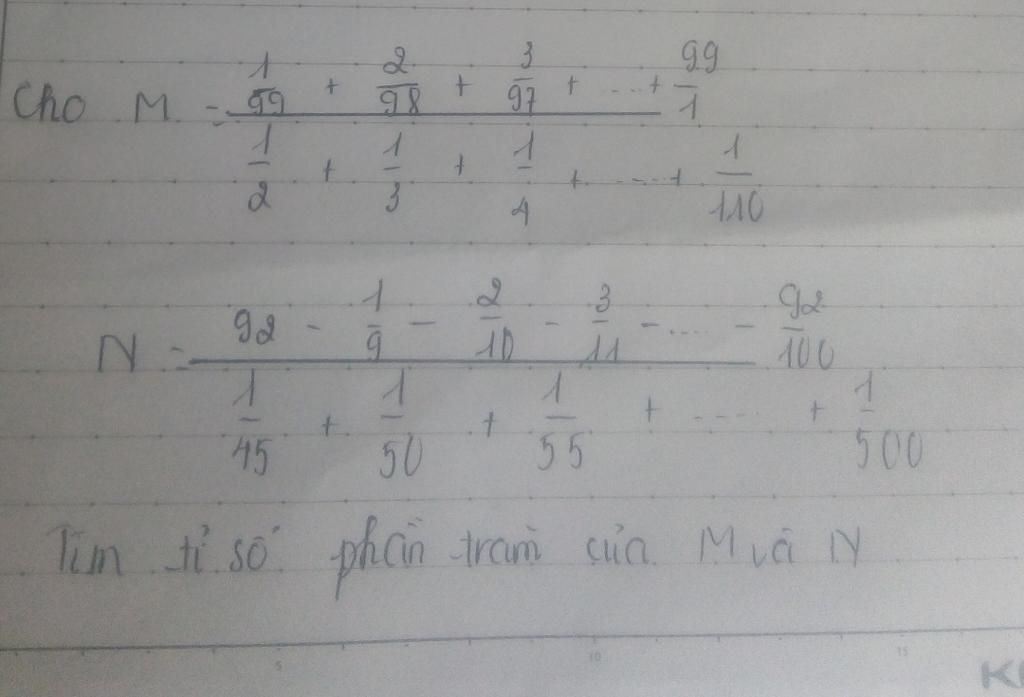 Cho M = 1/99 + 2/98 + 3/97 + ... + 99/1
1/2 + 1/3 + 1/4 + ... + 1/110
N = 92 - 1/9 - 2/10 - 3/11 - .... - 92/100
1/45 + 1/50 + 1/55 + .... + 1/500
Tìm tỉ số phần trăm của M và N
5 10 15